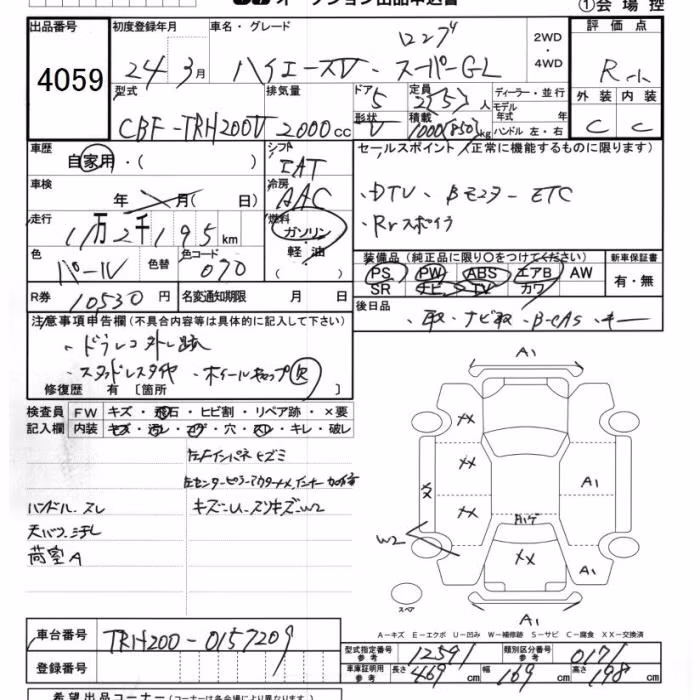 オークション出品申込書 ①会場控
出品番号 4059
初度登録年月 24年3月
車名・グレード ロング ハイエースV・スーパーGL
2WD・4WD
評価点 R
外装 C 内装 C
型式 CBF-TRH200V
排気量 2000cc
ドア 5 形状 V
定員 2(5)人 積載 1000(850)kg
ディーラー・並行 モデル年式 年式 ハンドル 左・右
車歴 自家用・( )
シフト IAT
セールスポイント (正常に機能するものに限ります)
車検 年 月( 日)
冷房 AAC
・DTV、Bモニター ETC
・Rrスポイラ
走行 1万2千195km
燃料 ガソリン・軽油 ( )
色 パール 色替 色コード 070
装備品 (純正品に限り○をつけてください) 新車保証書
PS PW ABS エアB AW 有・無
SR ナビ TV カワ
R券 10530円 名変通知期限 月 日
後日品 ・取・ナビ取・B-CAS・キー
注意事項申告欄(不具合内容等は具体的に記入して下さい)
・ドラレコ外し跡
・スタッドレスタイヤ ・ホイールキャップ欠
修復歴 有 〔箇所 〕
検査員記入欄 FW キズ・飛石・ヒビ割・リペア跡・×要
内装 キズ・汚レ・コゲ・穴・スレ・キレ・破レ
左Fインパネヒズミ
左センターピラーアウター××、インナー加修有
ハンドル、スレ キズ-U、スリキズ-W2
天バリ、汚れ
荷室A
A1
XX
XX
XX
XX
A1
Aハゲ
W2
XX
A1
スペア
A1
A-キズ E-エクボ U-凹み W-補修跡 S-サビ C-腐食 XX-交換済
車台番号 TRH200-0157209
型式指定番号 参考 12591 類別区分番号 参考 0171
登録番号
車庫証明用 参考 長さ 469cm 幅 169cm 高さ 198cm
希望出品コーナー (コーナーは各会場により異なります。)